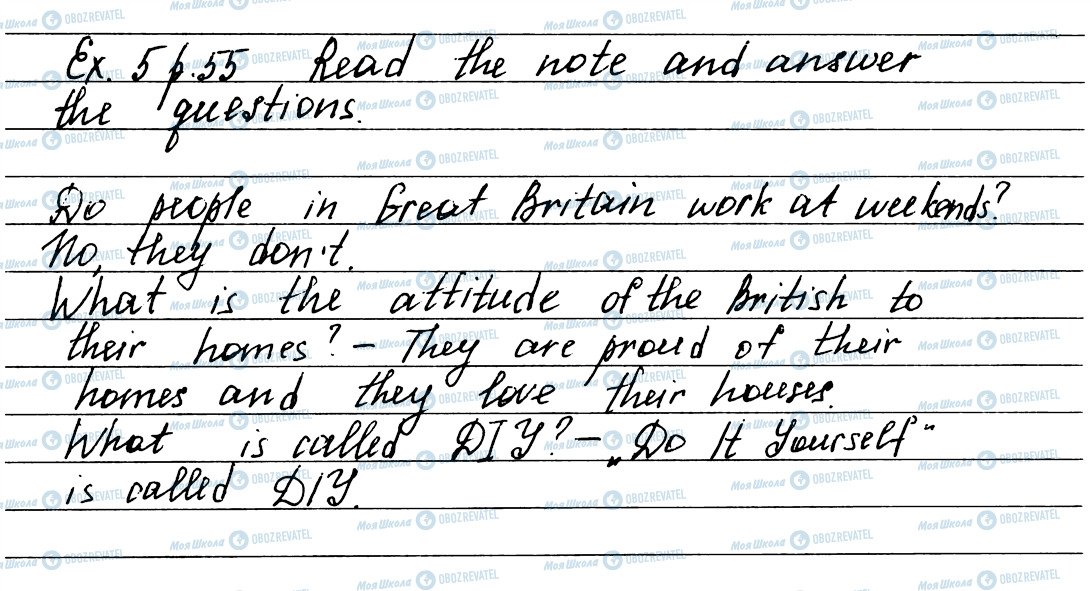 Ex. 5 p.55 Read the note and answer
the questions.
Do people in Great Britain work at weekends?
No, they don't.
What is the attitude of the British to
their homes? – They are proud of their
homes and they love their houses.
What is called DIY? – „Do It Yourself“
is called DIY.